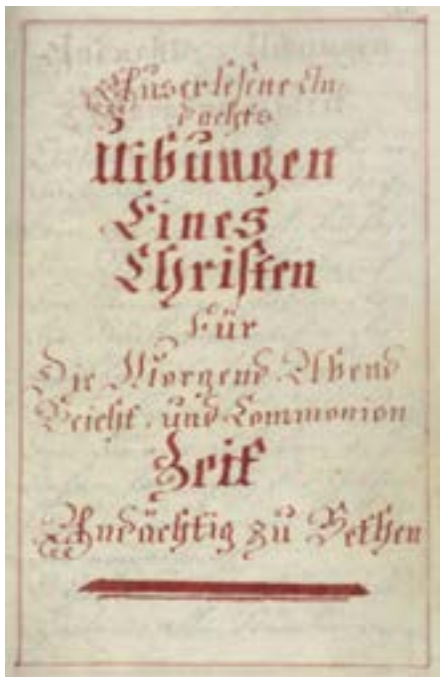 Auserlesene An
dachts
Uibungen
Eines
Christen
Für
Die Morgend Abend
Beicht, und Commonion
Zeit
Andächtig zu Bethen